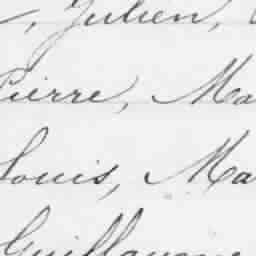 , Julien,
Pierre, Ma
Louis, Ma
Guillaume